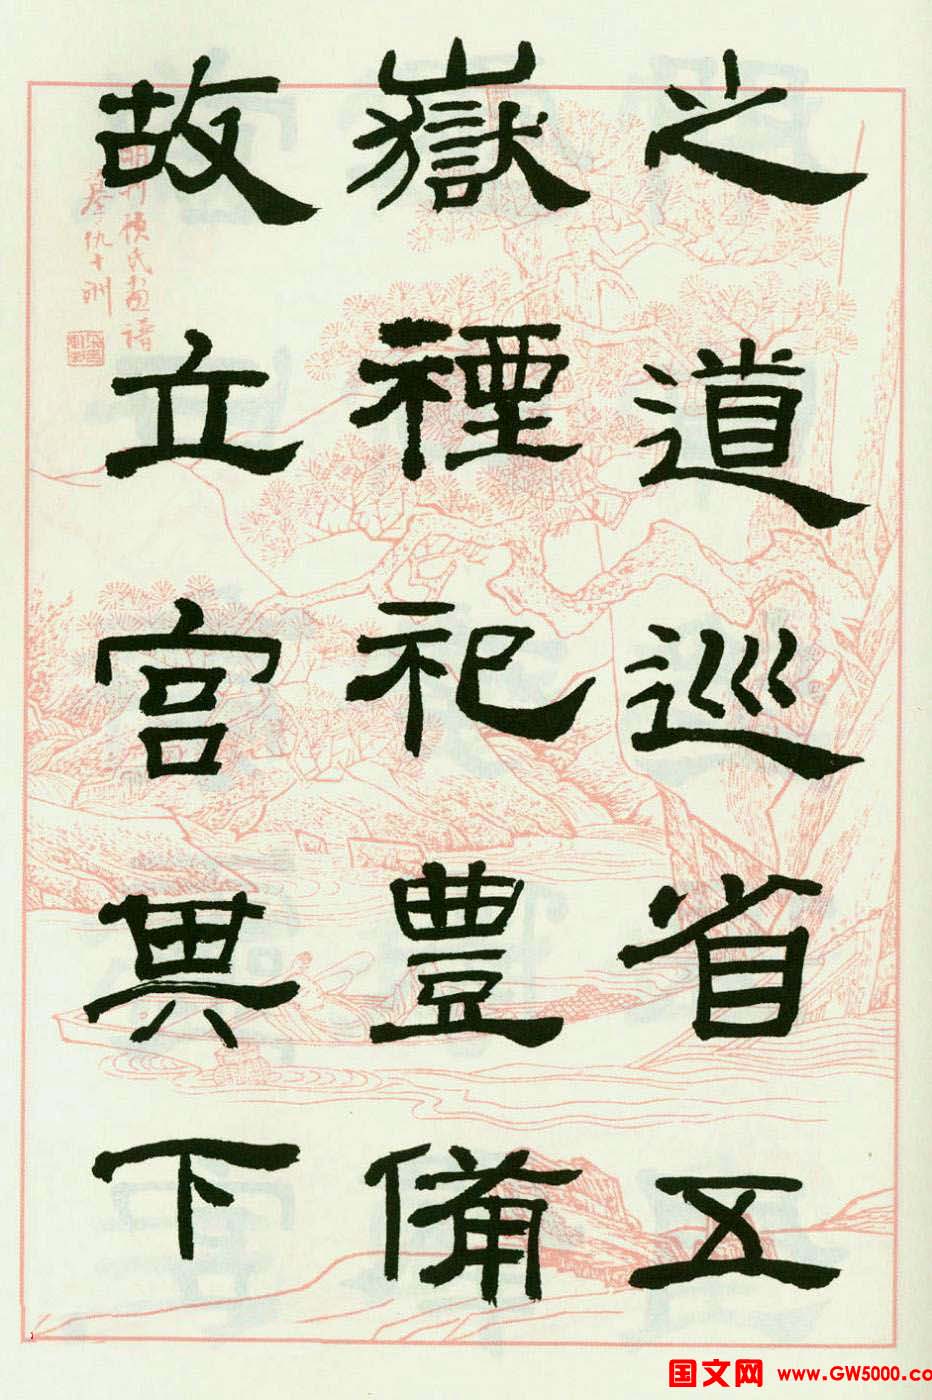 之道巡省五
嶽禋祀豐備
故立宮其下
明刊顧氏画譜
摹仇十洲
国文网 www.GW5000.co